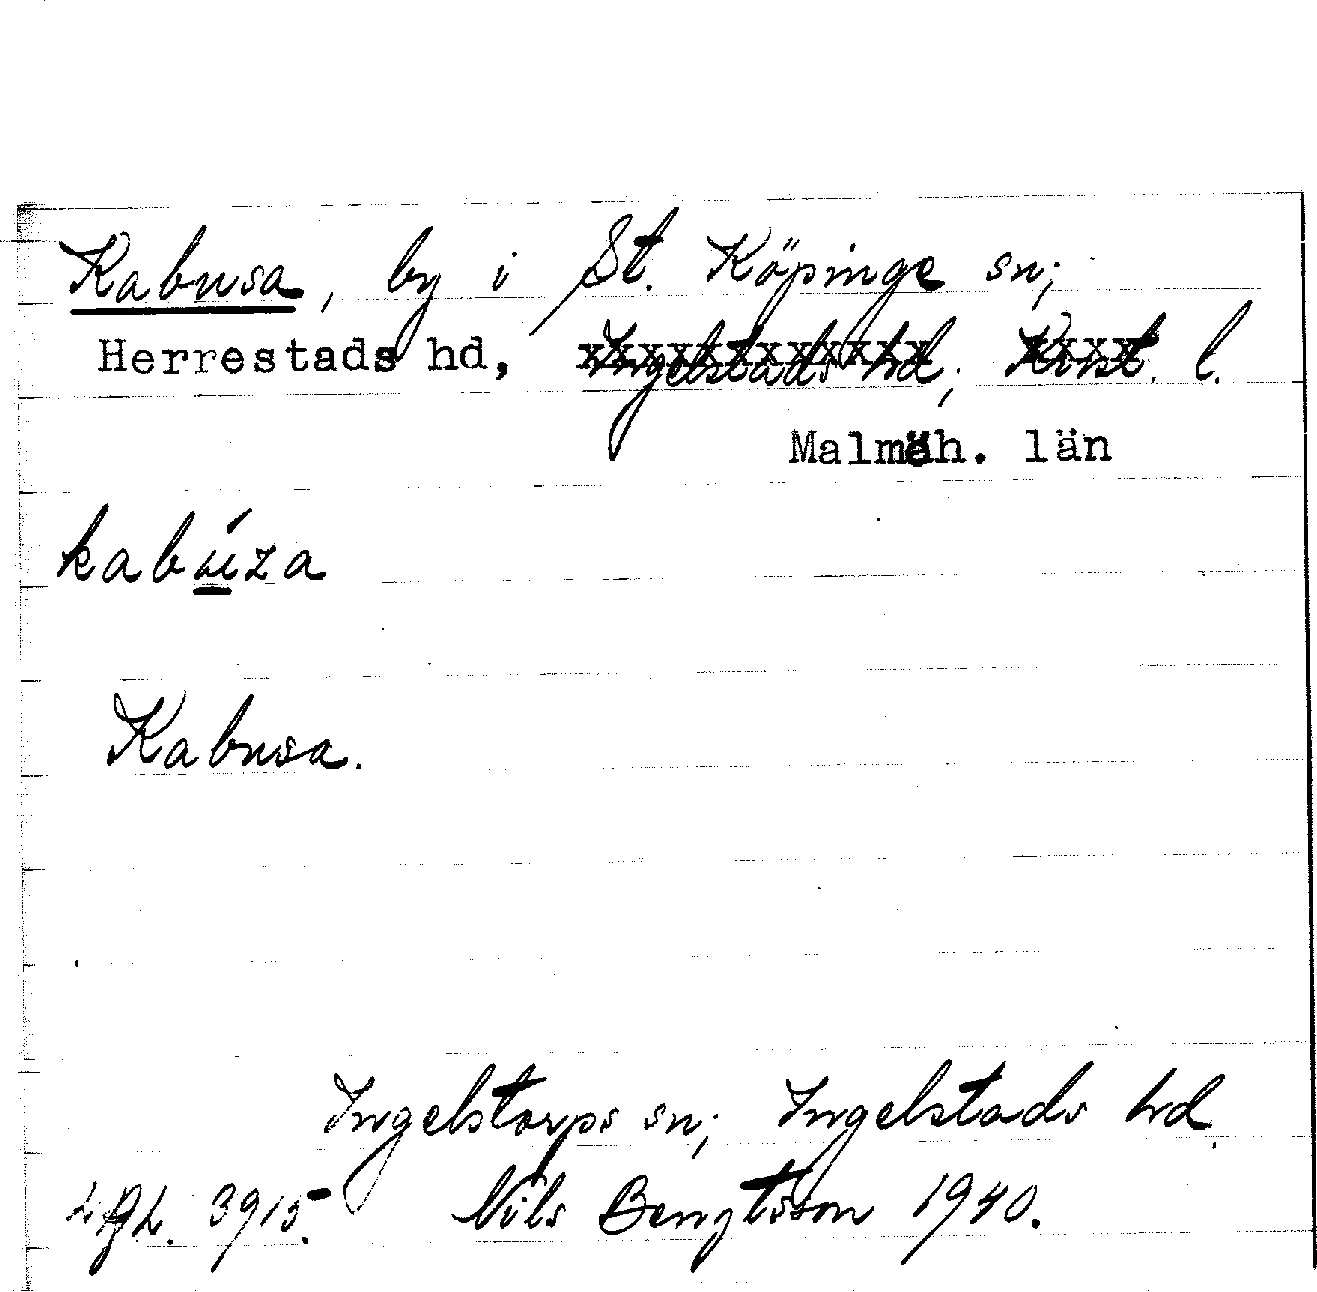 Kabusa, by i St. Köpinge sn;
Herrestads hd, Ingelstads hd; Krist. l.
Malmöh. län
kabúza
Kabusa.
Ingelstorps sn; Ingelstads hd.
3915. Nils Bengtsson 1940.